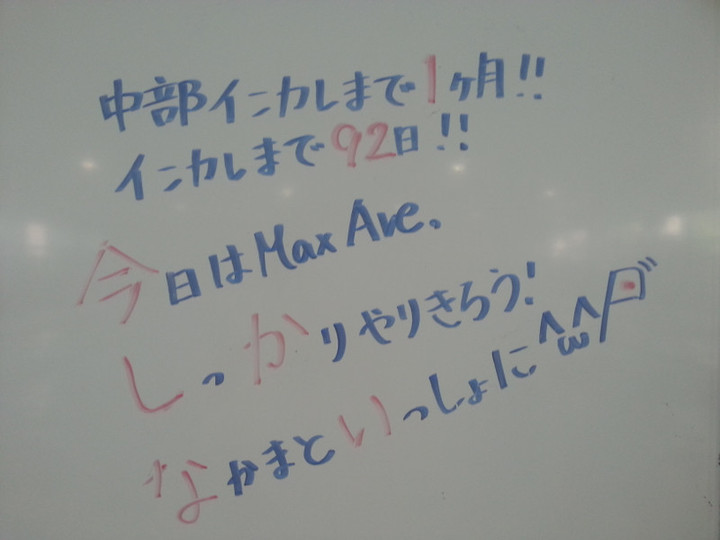 中部インカレまで1ヶ月!!
インカレまで92日!!
今日はMax Ave.
しっかりやりきろう!
なかまといっしょに^ω^